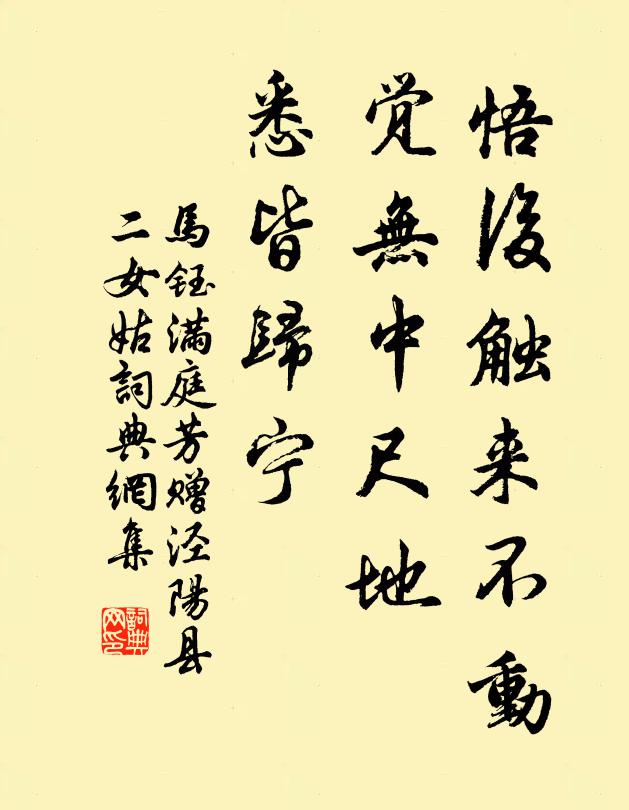 悟後触来不動
覚無中尺地
悉皆歸宁
馬鈺满庭芳赠泾陽县
二女姑詞典網集
詞典网印